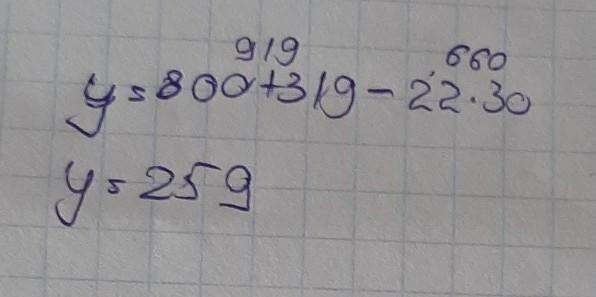 919 660
y=800+319-22·30
y=259